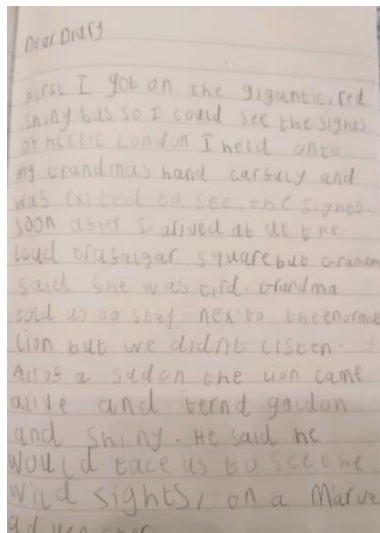 Dear Diary
First I got on the gigantic, red
shiny bus so I could see the sights
of hectic London I held onto
my Grandmas hand carfuly and
was exited to see the sights
soon after I arived at at the
loud trafalgar square but Grandm
said she was tird. Grandma
told us to stay nex to the enormus
lion but we didnt listen.
All of a sudon the lion came
alive and ternd goldon
and shiny. He said he
would tace us to see the
wild sights, on a Marve